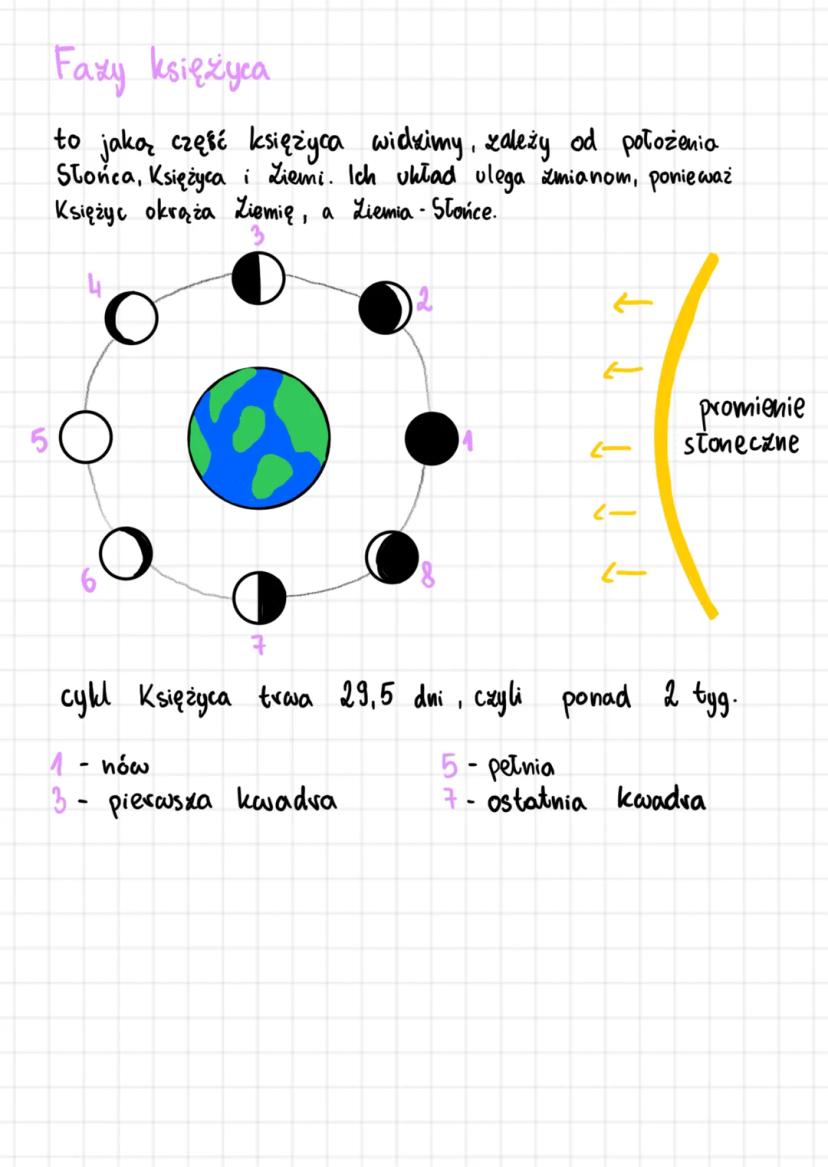 Fazy księżyca
to jaką część księżyca widzimy, zależy od położenia
Słońca, Księżyca i Ziemi. Ich układ ulega zmianom, ponieważ
Księżyc okrąża Ziemię, a Ziemia - Słońce.
3
4
2
promienie
słoneczne
5
1
6
8
7
cykl Księżyca trwa 29,5 dni, czyli ponad 2 tyg.
1 - nów
5 - pełnia
3 - pierwsza kwadra
7 - ostatnia kwadra